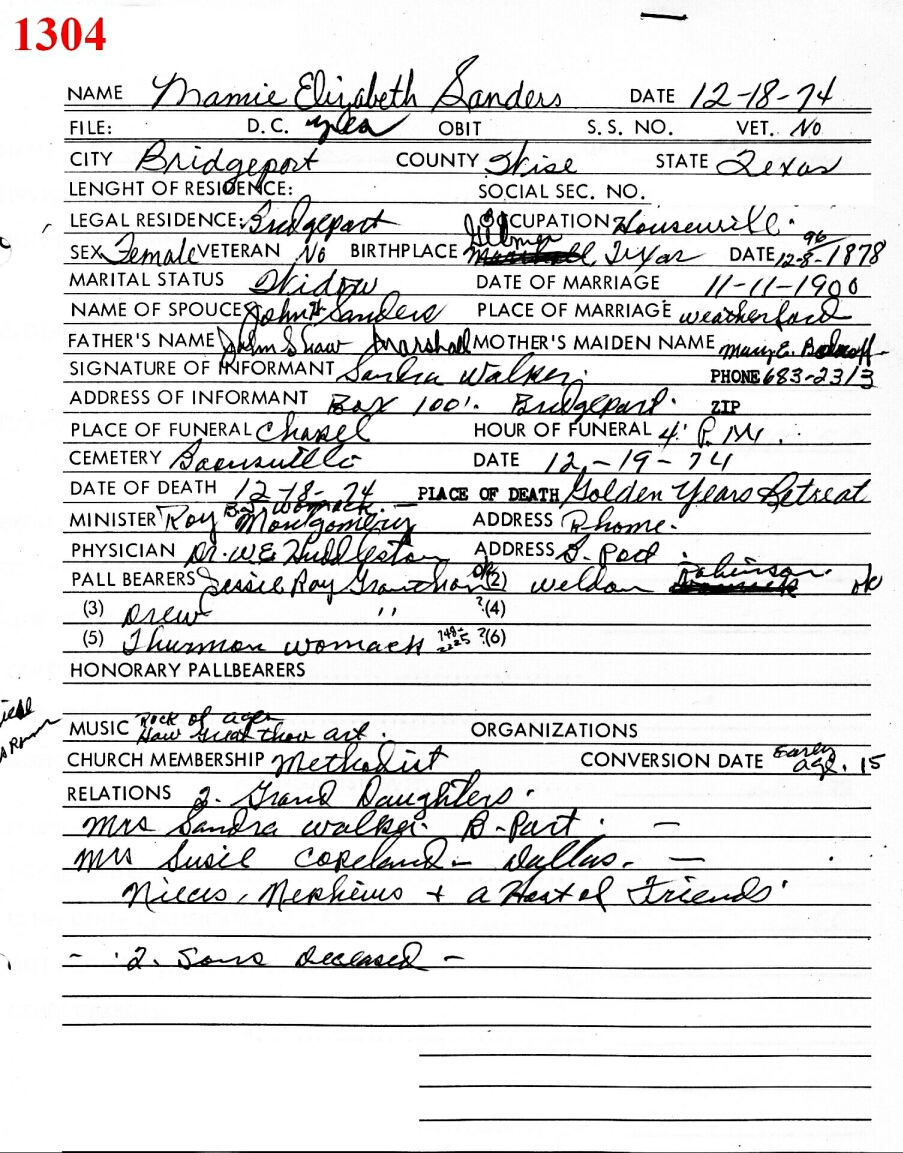 1304
NAME Mamie Elizabeth Sanders DATE 12-18-74
FILE: D.C. yes OBIT S. S. NO. VET. No
CITY Bridgeport COUNTY Wise STATE Texas
LENGHT OF RESIDENCE: SOCIAL SEC. NO.
LEGAL RESIDENCE: Bridgeport OCCUPATION Housewife.
SEX Female VETERAN No BIRTHPLACE Gilmer Texas DATE 12-8-1878 96
MARITAL STATUS Widow DATE OF MARRIAGE 11-11-1900
NAME OF SPOUCE John H Sanders PLACE OF MARRIAGE weatherford
FATHER'S NAME John Shaw Marshall MOTHER'S MAIDEN NAME Mary E.
SIGNATURE OF INFORMANT Sandra Walker. PHONE 683-2313
ADDRESS OF INFORMANT Box 1001. Bridgeport. ZIP
PLACE OF FUNERAL Chapel HOUR OF FUNERAL 4: P.M.
CEMETERY Boonsville DATE 12-19-74
DATE OF DEATH 12-18-74 PLACE OF DEATH Golden Years Retreat
B.J. Womack.
MINISTER Roy Montgomery ADDRESS Rhome.
PHYSICIAN Dr. W E Huddleston ADDRESS B. Port
PALL BEARERS Jessie Roy Grantham ok (2) Weldon Johnson. ok
(3) Drew " ? (4)
(5) Thurman Womack 748-2225 ? (6)
HONORARY PALLBEARERS
MUSIC Rock of ages How Great thou art. ORGANIZATIONS
CHURCH MEMBERSHIP Methodist CONVERSION DATE Early age. 15
RELATIONS 2. Grand Daughters.
Mrs Sandra Walker. B-Port. —
Mrs Susie Copeland - Dallas. —
Nieces, Nephews + a Host of Friends.
- 2. Sons Deceased -